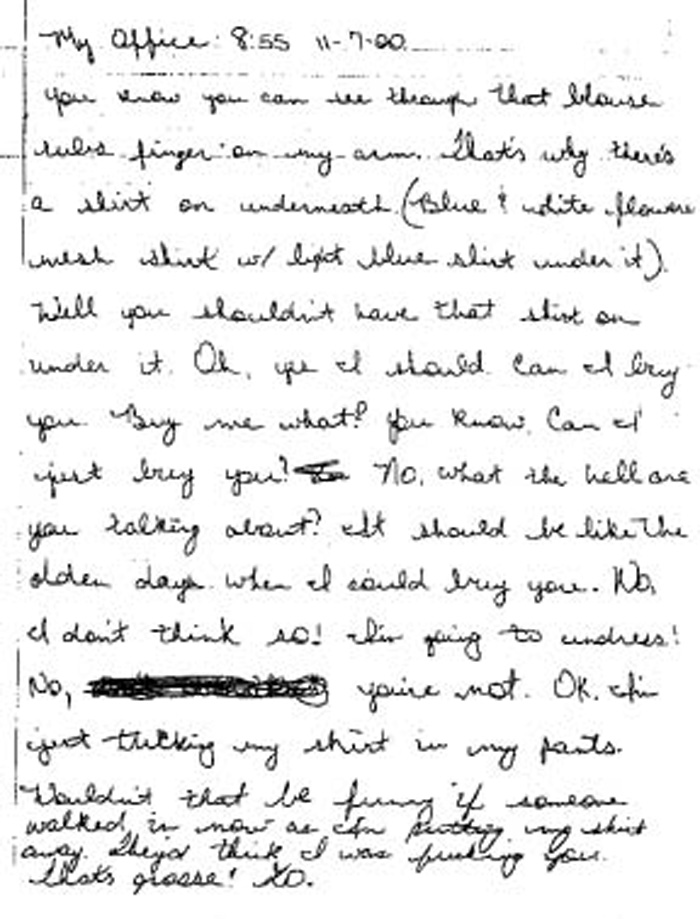 My Office 8:55 11-7-00
You know you can see through that blouse
rubs finger on my arm. That's why there's
a shirt on underneath (Blue & white flower
mesh shirt w/ light blue shirt under it).
Well you shouldn't have that shirt on
under it. Oh, yes I should. Can I buy
you. Buy me what? You know, Can I
just buy you? No, what the hell are
you talking about? It should be like the
olden days when I could buy you. No,
I don't think so! I'm going to undress!
No, you're not. OK. I'm
just tucking my shirt in my pants.
Wouldn't that be funny if someone
walked in now as I'm putting my shirt
away. They'd think I was fucking you.
That's grosse!